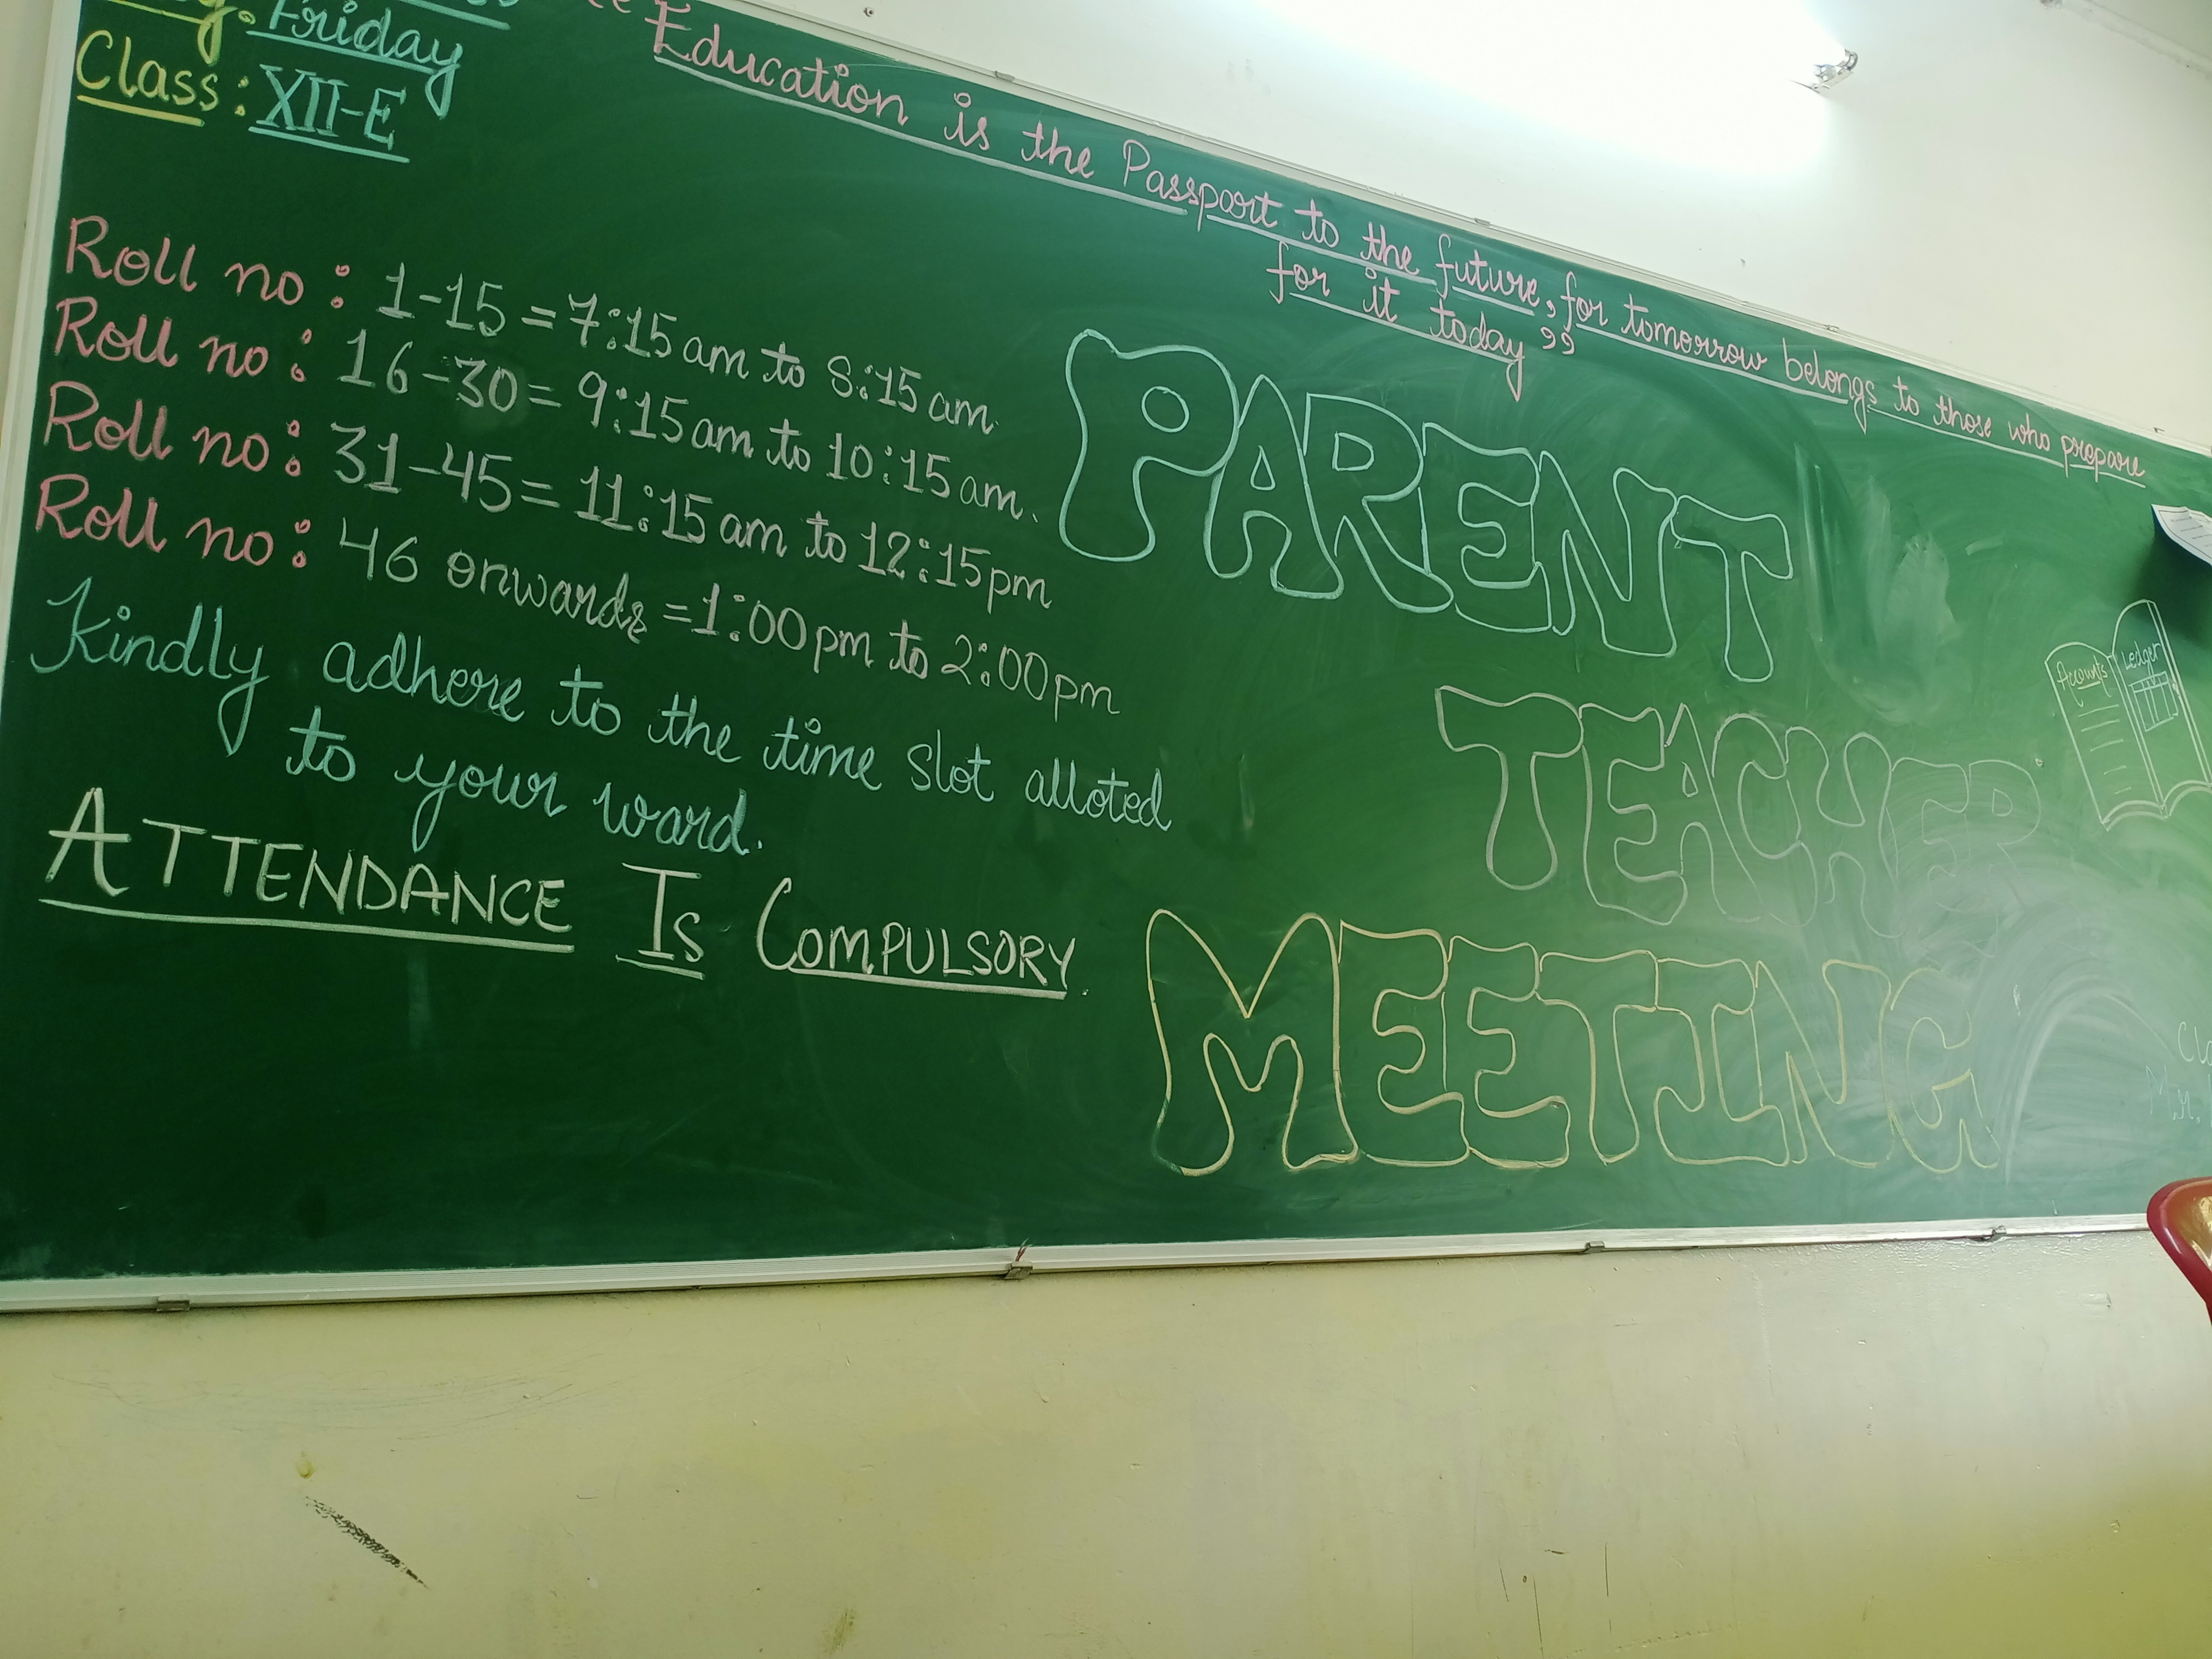 Friday
Class: XII-E
"Education is the Passport to the future, for tomorrow belongs to those who prepare
for it today"
Roll no: 1-15 = 7:15 am to 8:15 am.
Roll no: 16-30 = 9:15 am to 10:15 am.
Roll no: 31-45 = 11:15 am to 12:15 pm
Roll no: 46 onwards = 1:00 pm to 2:00 pm
Kindly adhere to the time slot alloted
to your ward.
ATTENDANCE IS COMPULSORY.
PARENT
TEACHER
MEETING
Accounts
Ledger